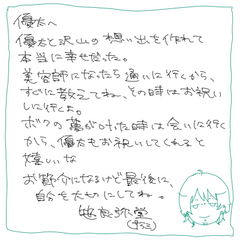 優太へ
優太と沢山の想い出を作れて
本当に幸せだった。
美容師になったら通いに行くから、
すぐに教えてね、その時はお祝い
しに行くよ。
ボクの夢が叶った時は会いに行く
から、優太もお祝いしてくれると
嬉しいな
お節介になるけど最後に、
自分も大切にしてね。